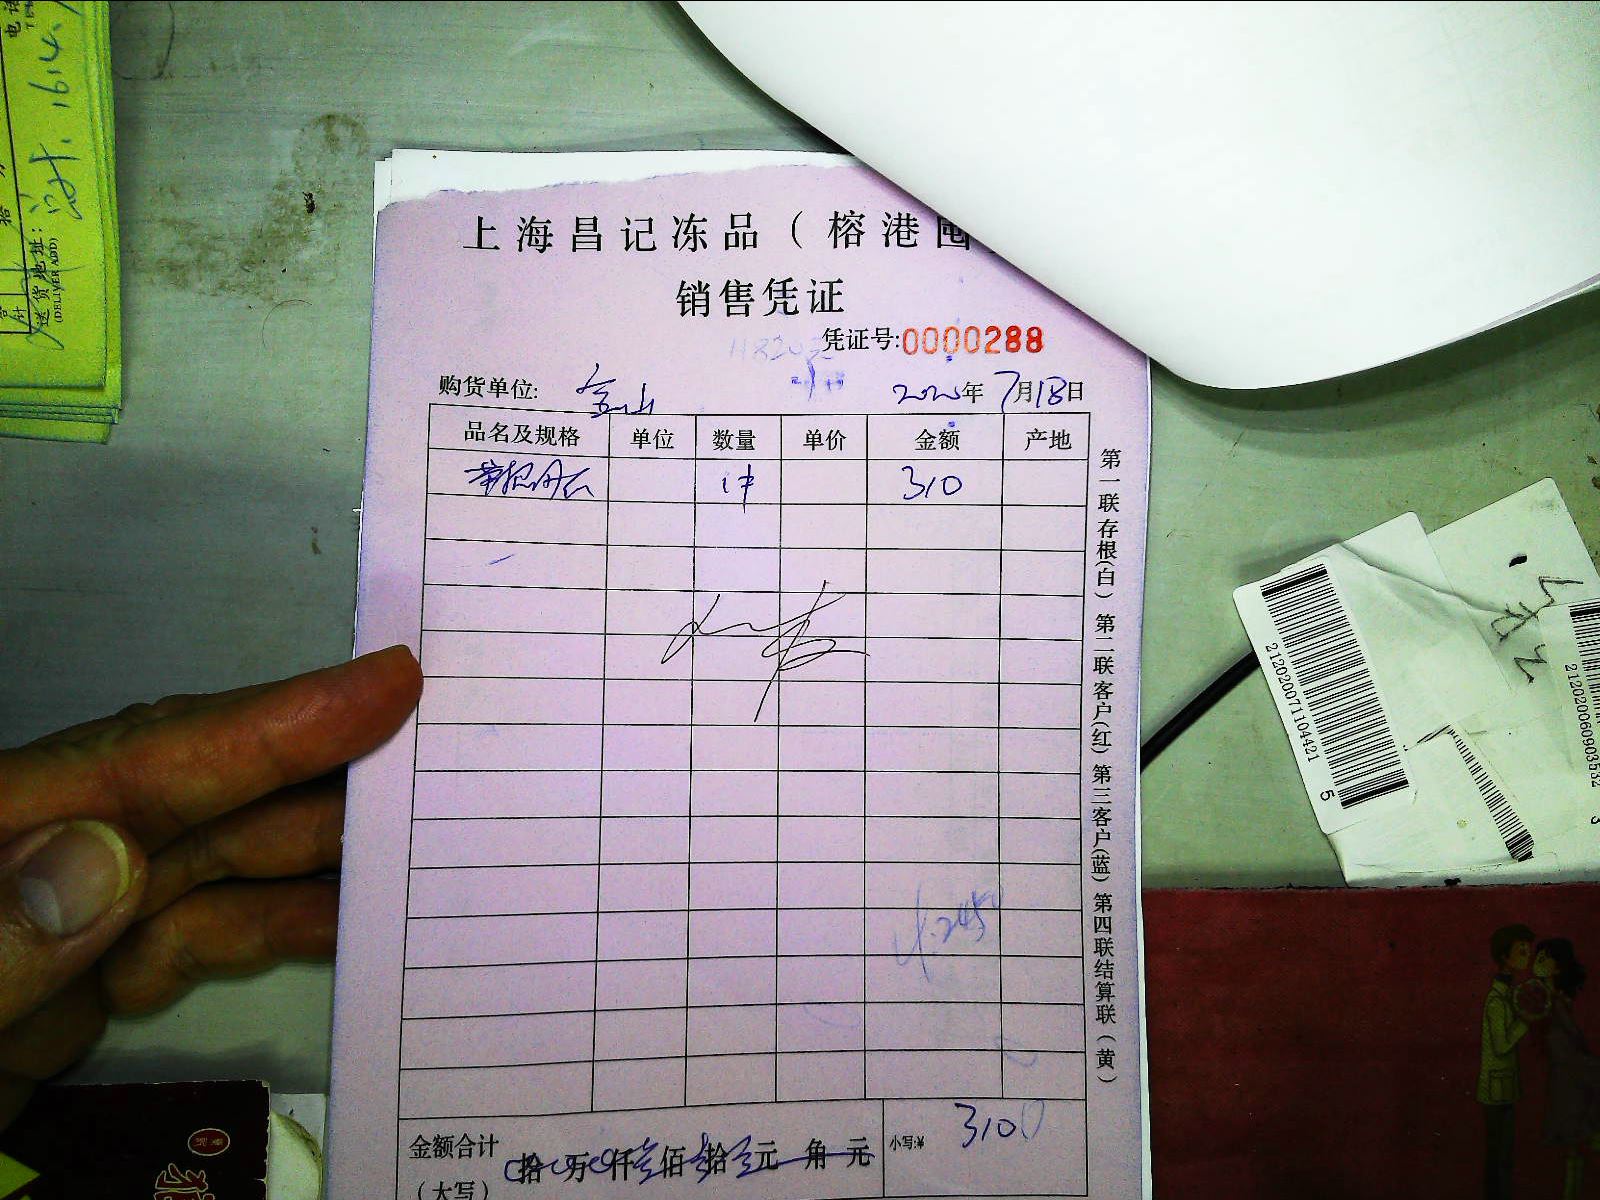 上海昌记冻品（榕港囤
销售凭证
凭证号:0000288
购货单位: 金山 2020年 7月18日
品名及规格 单位 数量 单价 金额 产地
1件 310
第一联存根(白) 第二联客户(红) 第三客户(蓝) 第四联结算联(黄)
245
金额合计 拾 万 仟 佰 拾 元 角 元 小写:¥ 310
(大写)
1614.
送货地址:
(DELIVER ADD)
2120200711044215
2120200609035323